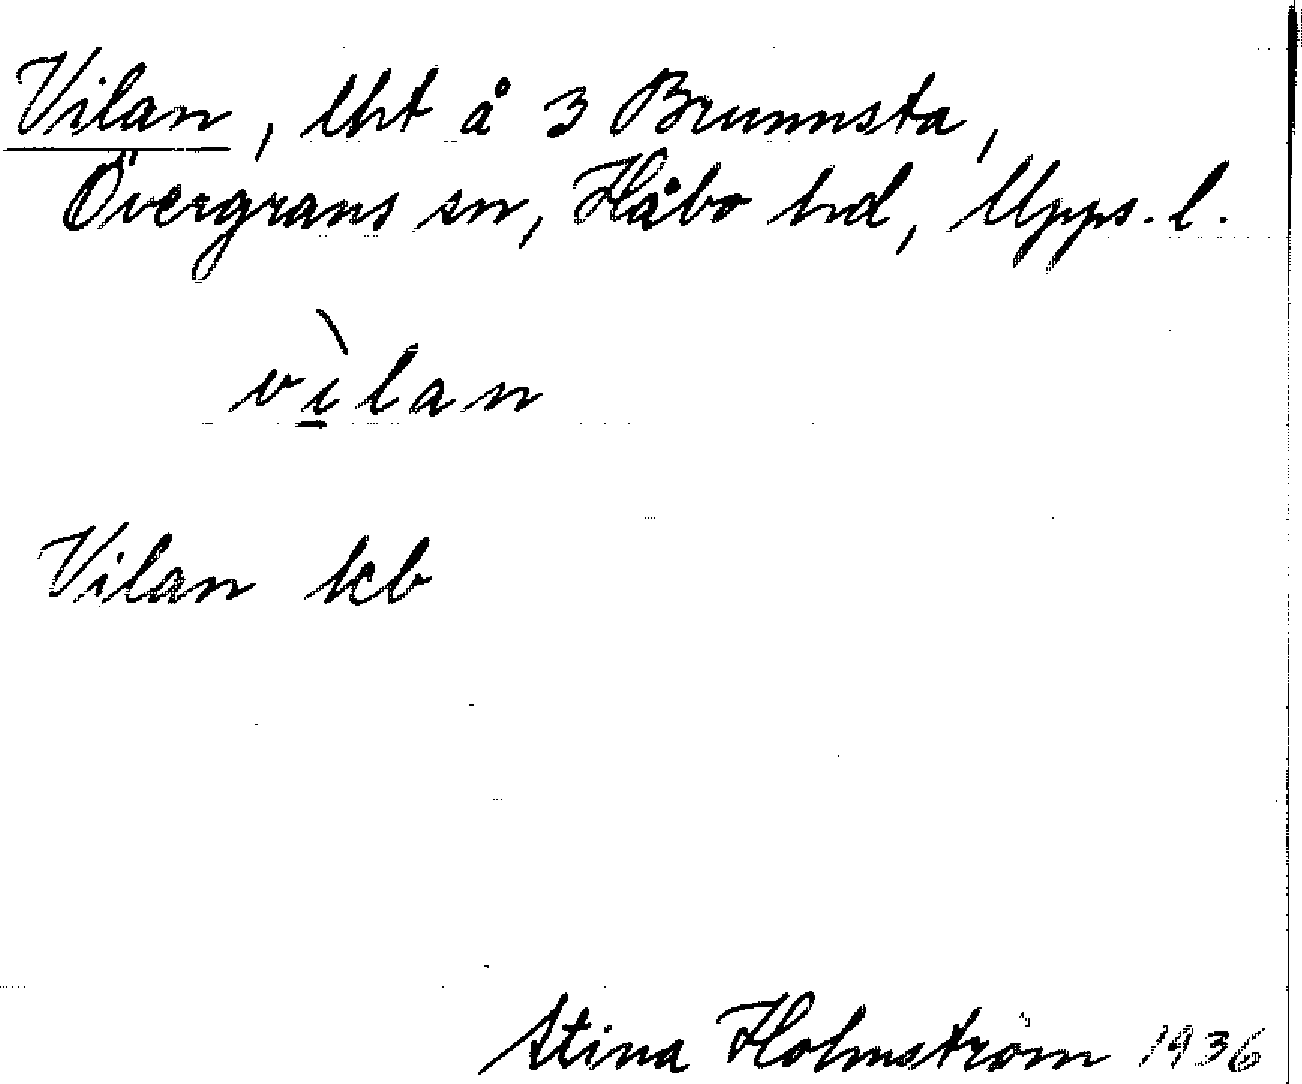 Vilan, lht å 3 Brunnsta,
Övergrans sn, Håbo hd, Upps. l.
vìlan
Vilan kb
Stina Holmström 1936